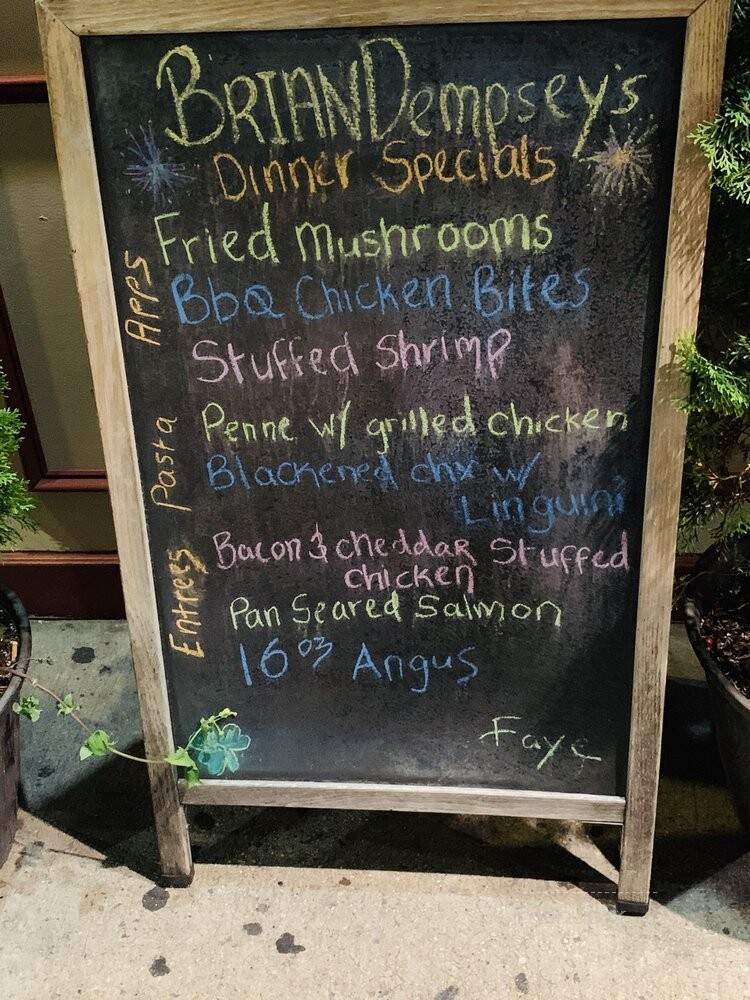 BRIAN Dempsey's
Dinner Specials
Apps
Fried Mushrooms
BbQ Chicken Bites
Stuffed Shrimp
Pasta
Penne w/ grilled chicken
Blackened chx w/
Linguini
Entrees
Bacon & cheddar Stuffed
chicken
Pan Seared Salmon
16oz Angus
Faye